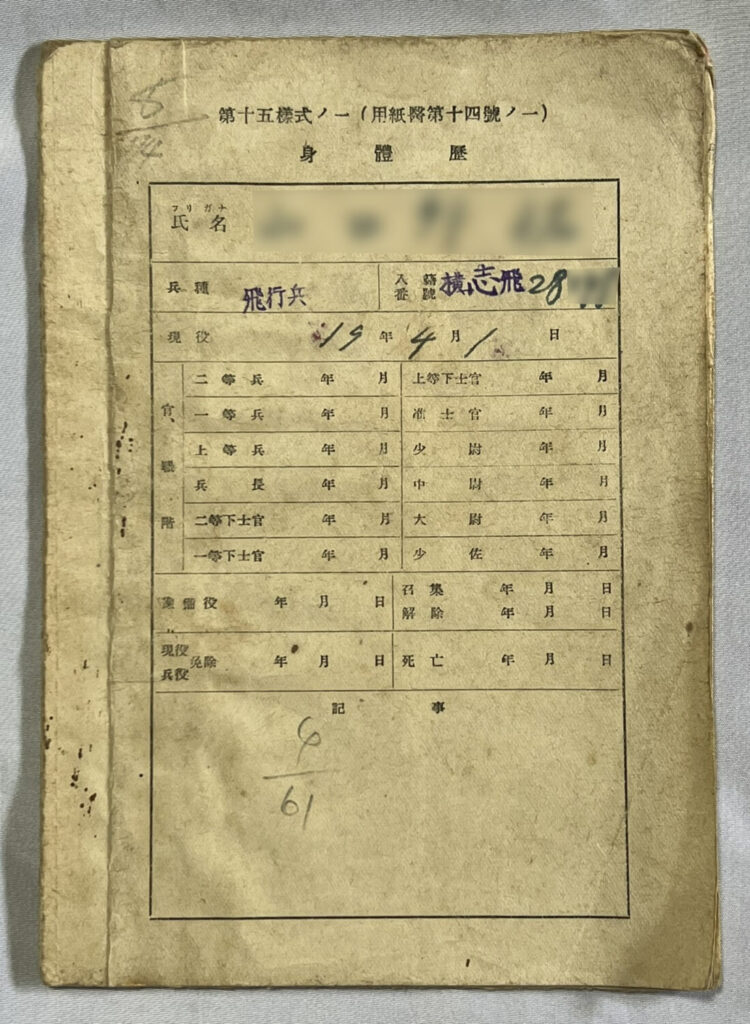 5
第十五樣式ノ一(用紙醫第十四號ノ一)
身體歷
フリガナ
氏名
兵種 飛行兵 入籍番號 横志飛28
現役 19年4月1日
官職階
二等兵 年 月 上等下士官 年 月
一等兵 年 月 准士官 年 月
上等兵 年 月 少尉 年 月
兵長 年 月 中尉 年 月
二等下士官 年 月 大尉 年 月
一等下士官 年 月 少佐 年 月
豫備役 年 月 日 召集 年 月 日
解除 年 月 日
現役兵役免除 年 月 日 死亡 年 月 日
記事
6
61